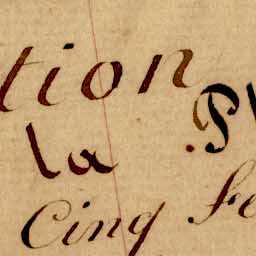 tion
la Pl
Cinq fe